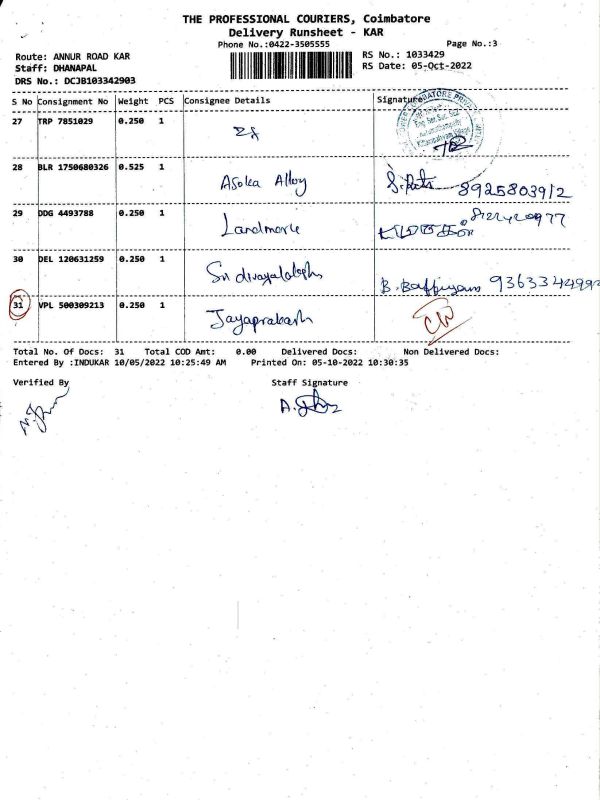 THE PROFESSIONAL COURIERS, Coimbatore
Delivery Runsheet - KAR
Phone No.:0422-3505555 Page No.:3
Route: ANNUR ROAD KAR RS No.: 1033429
Staff: DHANAPAL RS Date: 05-Oct-2022
DRS No.: DCJB103342903
S No Consignment No Weight PCS Consignee Details Signature
27 TRP 7851029 0.250 1
28 BLR 1750680326 0.525 1 Asoka Alloy 8925803912
29 DDG 4493788 0.250 1 Landmark
30 DEL 120631259 0.250 1 Sri
31 VPL 500309213 0.250 1 Jayaprakash
Total No. Of Docs: 31 Total COD Amt: 0.00 Delivered Docs: Non Delivered Docs:
Entered By :INDUKAR 10/05/2022 10:25:49 AM Printed On: 05-10-2022 10:30:35
Verified By Staff Signature